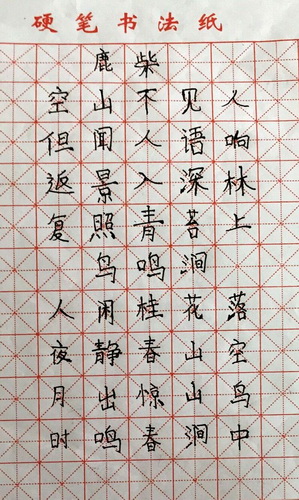 硬笔书法纸
鹿柴
空山不见人
但闻人语响
返景入深林
复照青苔上
鸟鸣涧
人闲桂花落
夜静春山空
月出惊山鸟
时鸣春涧中